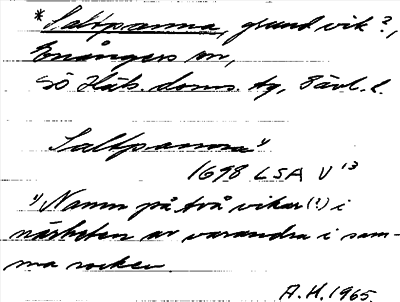 * Saltpanna, grund vik?,
Enångers sn,
sö Häls. doms. tg, Gävl. l.
Saltpanna¹⁾
1698 LSA V 13
¹⁾ Namn på två vikar(?) i
närheten av varandra i sam-
ma socken
A.H. 1965.